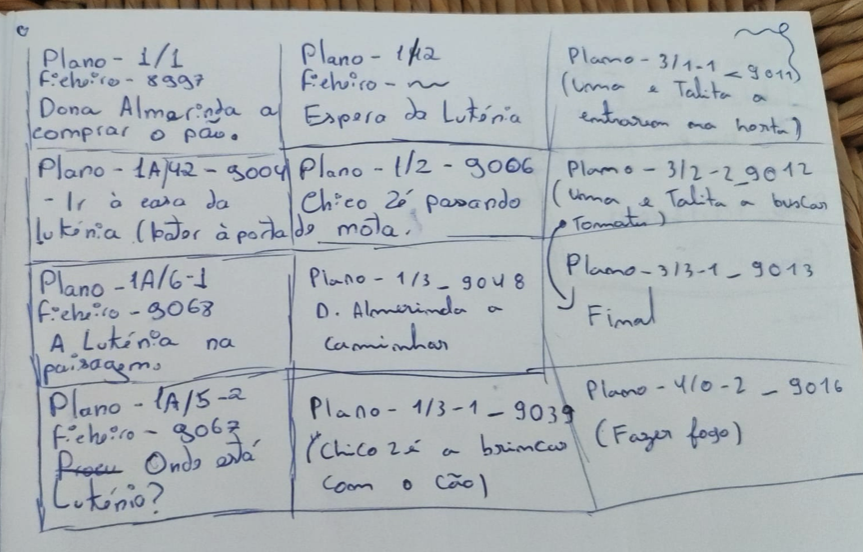 Plano - 1/1
ficheiro - 8997
Dona Almerinda a
comprar o pão.
Plano - 1/12
ficheiro -
Espera da Luténia
Plano - 3/1-1 - 9011
(Uma e Talita a
entrarem na horta)
Plano - 1A/42 - 9004
- Ir à casa da
luténia (bater à porta
Plano - 1/2 - 9006
Chico Zé passando
de mota.
Plano - 3/2-2_9012
(Uma e Talita a buscar
Tomates)
Plano - 1A/6-1
ficheiro - 9068
A Luténia na
paisagem.
Plano - 1/3 - 9048
D. Almerinda a
caminhar
Plano - 3/3-1 - 9013
Final
Plano - 1A/5-2
ficheiro - 9067
Onde está
Luténia?
Plano - 1/3-1 - 9039
(Chico Zé a brincar
com o Cão)
Plano - 4/0-2 - 9016
(Fazer fogo)